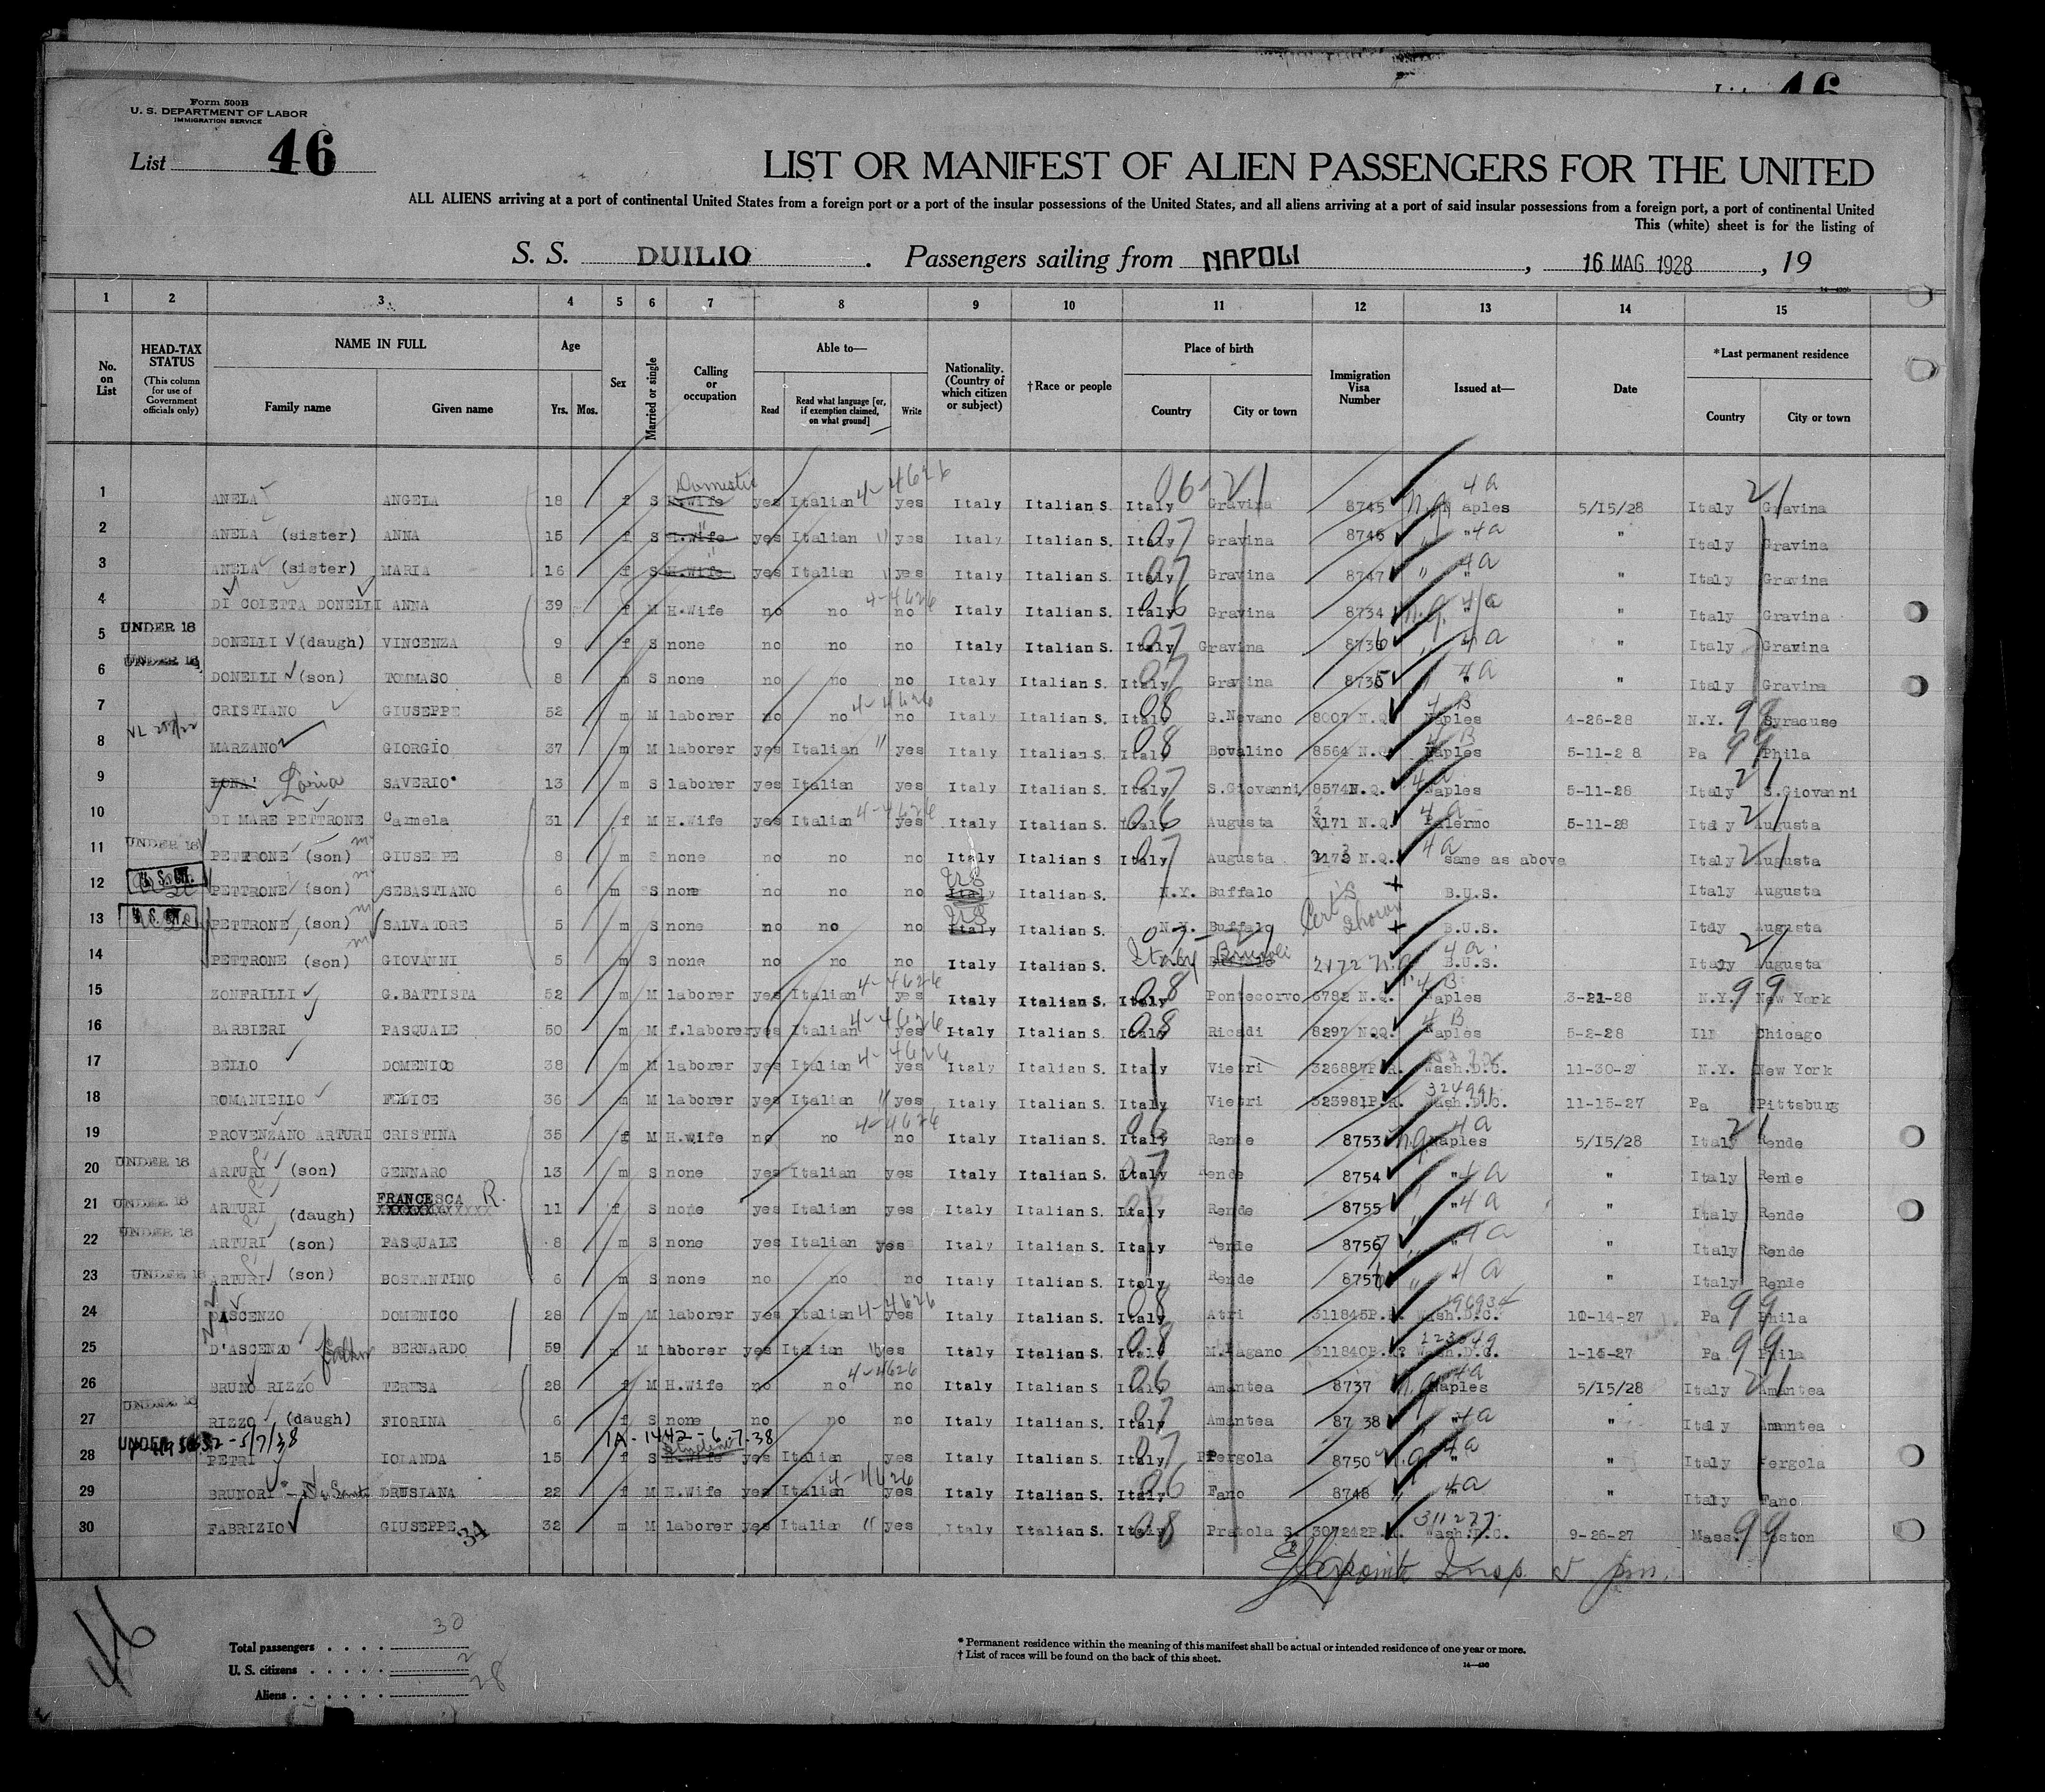 Form 500B
U. S. DEPARTMENT OF LABOR
IMMIGRATION SERVICE
List 46
LIST OR MANIFEST OF ALIEN PASSENGERS FOR THE UNITED
ALL ALIENS arriving at a port of continental United States from a foreign port or a port of the insular possessions of the United States, and all aliens arriving at a port of said insular possessions from a foreign port, a port of continental United
This (white) sheet is for the listing of
S. S. DUILIO. Passengers sailing from NAPOLI, 16 MAG 1928, 19
1 2 3 4 5 6 7 8 9 10 11 12 13 14 15
No. on List
HEAD-TAX STATUS (This column for use of Government officials only)
NAME IN FULL Family name Given name
Age Yrs. Mos.
Sex
Married or single
Calling or occupation
Able to— Read Read what language [or, if exemption claimed, on what ground] Write
Nationality. (Country of which citizen or subject)
†Race or people
Place of birth Country City or town
Immigration Visa Number
Issued at—
Date
*Last permanent residence Country City or town
1 ANELA ANGELA 18 f S H.Wife Domestic yes Italian 4-4626 yes Italy Italian S. Italy 06-21 Gravina 8745 Naples 4a 5/15/28 Italy 21 Gravina
2 ANELA (sister) ANNA 15 f S H.Wife " yes Italian " yes Italy Italian S. Italy 07 Gravina 8746 " 4a " Italy Gravina
3 ANELA (sister) MARIA 16 f S H.Wife " yes Italian " yes Italy Italian S. Italy 07 Gravina 8747 " 4a " Italy Gravina
4 DI COLETTA DONELLI ANNA 39 f M H.Wife no no 4-4626 no Italy Italian S. Italy 06 Gravina 8734 n.q. " 4a " Italy Gravina
5 UNDER 16 DONELLI (daugh) VINCENZA 9 f S none no no no Italy Italian S. Italy 07 Gravina 8736 " 4a " Italy Gravina
6 UNDER 16 DONELLI (son) TOMMASO 8 m S none no no no Italy Italian S. Italy 07 Gravina 8735 " 4a " Italy Gravina
7 CRISTIANO GIUSEPPE 52 m M laborer no no 4-4626 no Italy Italian S. Italy 08 G.Novano 8007 N.Q. Naples 4B 4-26-28 N.Y. 99 Syracuse
8 MARZANO GIORGIO 37 m M laborer yes Italian " yes Italy Italian S. Italy 08 Bovalino 8564 N.Q. Naples 4B 5-11-28 Pa 99 Phila
9 SAVERIO 13 m S laborer yes Italian yes Italy Italian S. Italy 07 S.Giovanni 8574 N.Q. Naples 4a 5-11-28 Italy 21 S.Giovanni
10 DI MARE PETTRONE Carmela 31 f M H.Wife yes Italian 4-4626 yes Italy Italian S. Italy 06 Augusta 2171 N.Q. Palermo 4a 5-11-28 Italy 21 Augusta
11 UNDER 16 PETTRONE (son) GIUSEPPE 8 m S none no no no Italy Italian S. Italy 07 Augusta 2173 N.Q. 4a same as above Italy 21 Augusta
12 U.S.CIT. PETTRONE (son) SEBASTIANO 6 m S none no no no Italy U.S. Italian S. N.Y. Buffalo Cert's shown B.U.S. Italy Augusta
13 U.S.CIT. PETTRONE (son) SALVATORE 5 m S none no no no Italy U.S. Italian S. N.Y. Buffalo B.U.S. Italy Augusta
14 PETTRONE (son) GIOVANNI 5 m S none no no no Italy Italian S. Italy 2172 n.q. B.U.S. 4a Italy 21 Augusta
15 ZONFRILLI G.BATTISTA 52 m M laborer yes Italian 4-4626 yes Italy Italian S. Italy 08 Pontecorvo 6782 N.Q. Naples 4B 3-21-28 N.Y. 99 New York
16 BARBIERI PASQUALE 50 m M f.laborer yes Italian 4-4626 yes Italy Italian S. Italy 08 Ricadi 8297 NQQ. Naples 4B 5-2-28 Chicago
17 BELLO DOMENICO 38 m M laborer yes Italian 4-4626 yes Italy Italian S. Italy Vietri 326887P.R. Wash.D.C. 11-30-27 N.Y. New York
18 ROMANIELLO FELICE 36 m M laborer yes Italian " yes Italy Italian S. Italy Vietri 323981P.R. Wash.D.C. 11-15-27 Pa Pittsburg
19 PROVENZANO ARTURI CRISTINA 35 f M H.wife no no 4-4626 no Italy Italian S. Italy 06 Rende 8753 n.q. Naples 4a 5/15/28 Italy 21 Rende
20 UNDER 16 ARTURI (son) GENNARO 13 m S none yes Italian yes Italy Italian S. Italy 07 Rende 8754 " 4a " Italy Rende
21 UNDER 16 ARTURI (daugh) FRANCESCA R. 11 f S none yes Italian yes Italy Italian S. Italy Rende 8755 " 4a " Italy Rende
22 UNDER 16 ARTURI (son) PASQUALE 8 m S none yes Italian yes Italy Italian S. Italy Rende 8756 " 4a " Italy Rende
23 UNDER 16 ARTURI (son) BOSTANTINO 6 m S none no no no Italy Italian S. Italy Rende 8757 " 4a " Italy Rende
24 DASCENZO DOMENICO 28 m M laborer yes Italian 4-4626 yes Italy Italian S. Italy 08 Atri 311845P.R. Wash.D.C. 10-14-27 Pa 99 Phila
25 D'ASCENZO father BERNARDO 59 m M laborer yes Italian " yes Italy Italian S. Italy 08 M.Pagano 311840P.R. Wash.D.C. 1-15-27 Pa 99 Phila
26 BRUNO RIZZO TERESA 28 f M H.Wife no no 4-4626 no Italy Italian S. Italy 06 Amantea 8737 n.q. Naples 4a 5/15/28 Italy 21 Amantea
27 UNDER 16 RIZZO (daugh) FIORINA 6 f S none no no no Italy Italian S. Italy 07 Amantea 8738 " 4a " Italy Amantea
28 UNDER 16 5/7/38 PETRI IOLANDA 15 f S 1A-1442-6-7-38 H.Wife Student yes Italian yes Italy Italian S. Italy 07 Pergola 8750 n.q. " 4a " Italy Pergola
29 BRUNORI DRUSIANA 22 f M H.Wife yes Italian 4-4626 yes Italy Italian S. Italy 06 Fano 8748 " 4a " Italy Fano
30 FABRIZIO GIUSEPPE 34 32 m M laborer yes Italian " yes Italy Italian S. Italy 08 Pratola S. 307242P.R. 311277 Wash.D.C. 9-26-27 Mass. 99 Boston
46
Total passengers . . . . 30
U. S. citizens . . . . . 2
Aliens . . . . . . 28
* Permanent residence within the meaning of this manifest shall be actual or intended residence of one year or more.
† List of races will be found on the back of this sheet.
14—430